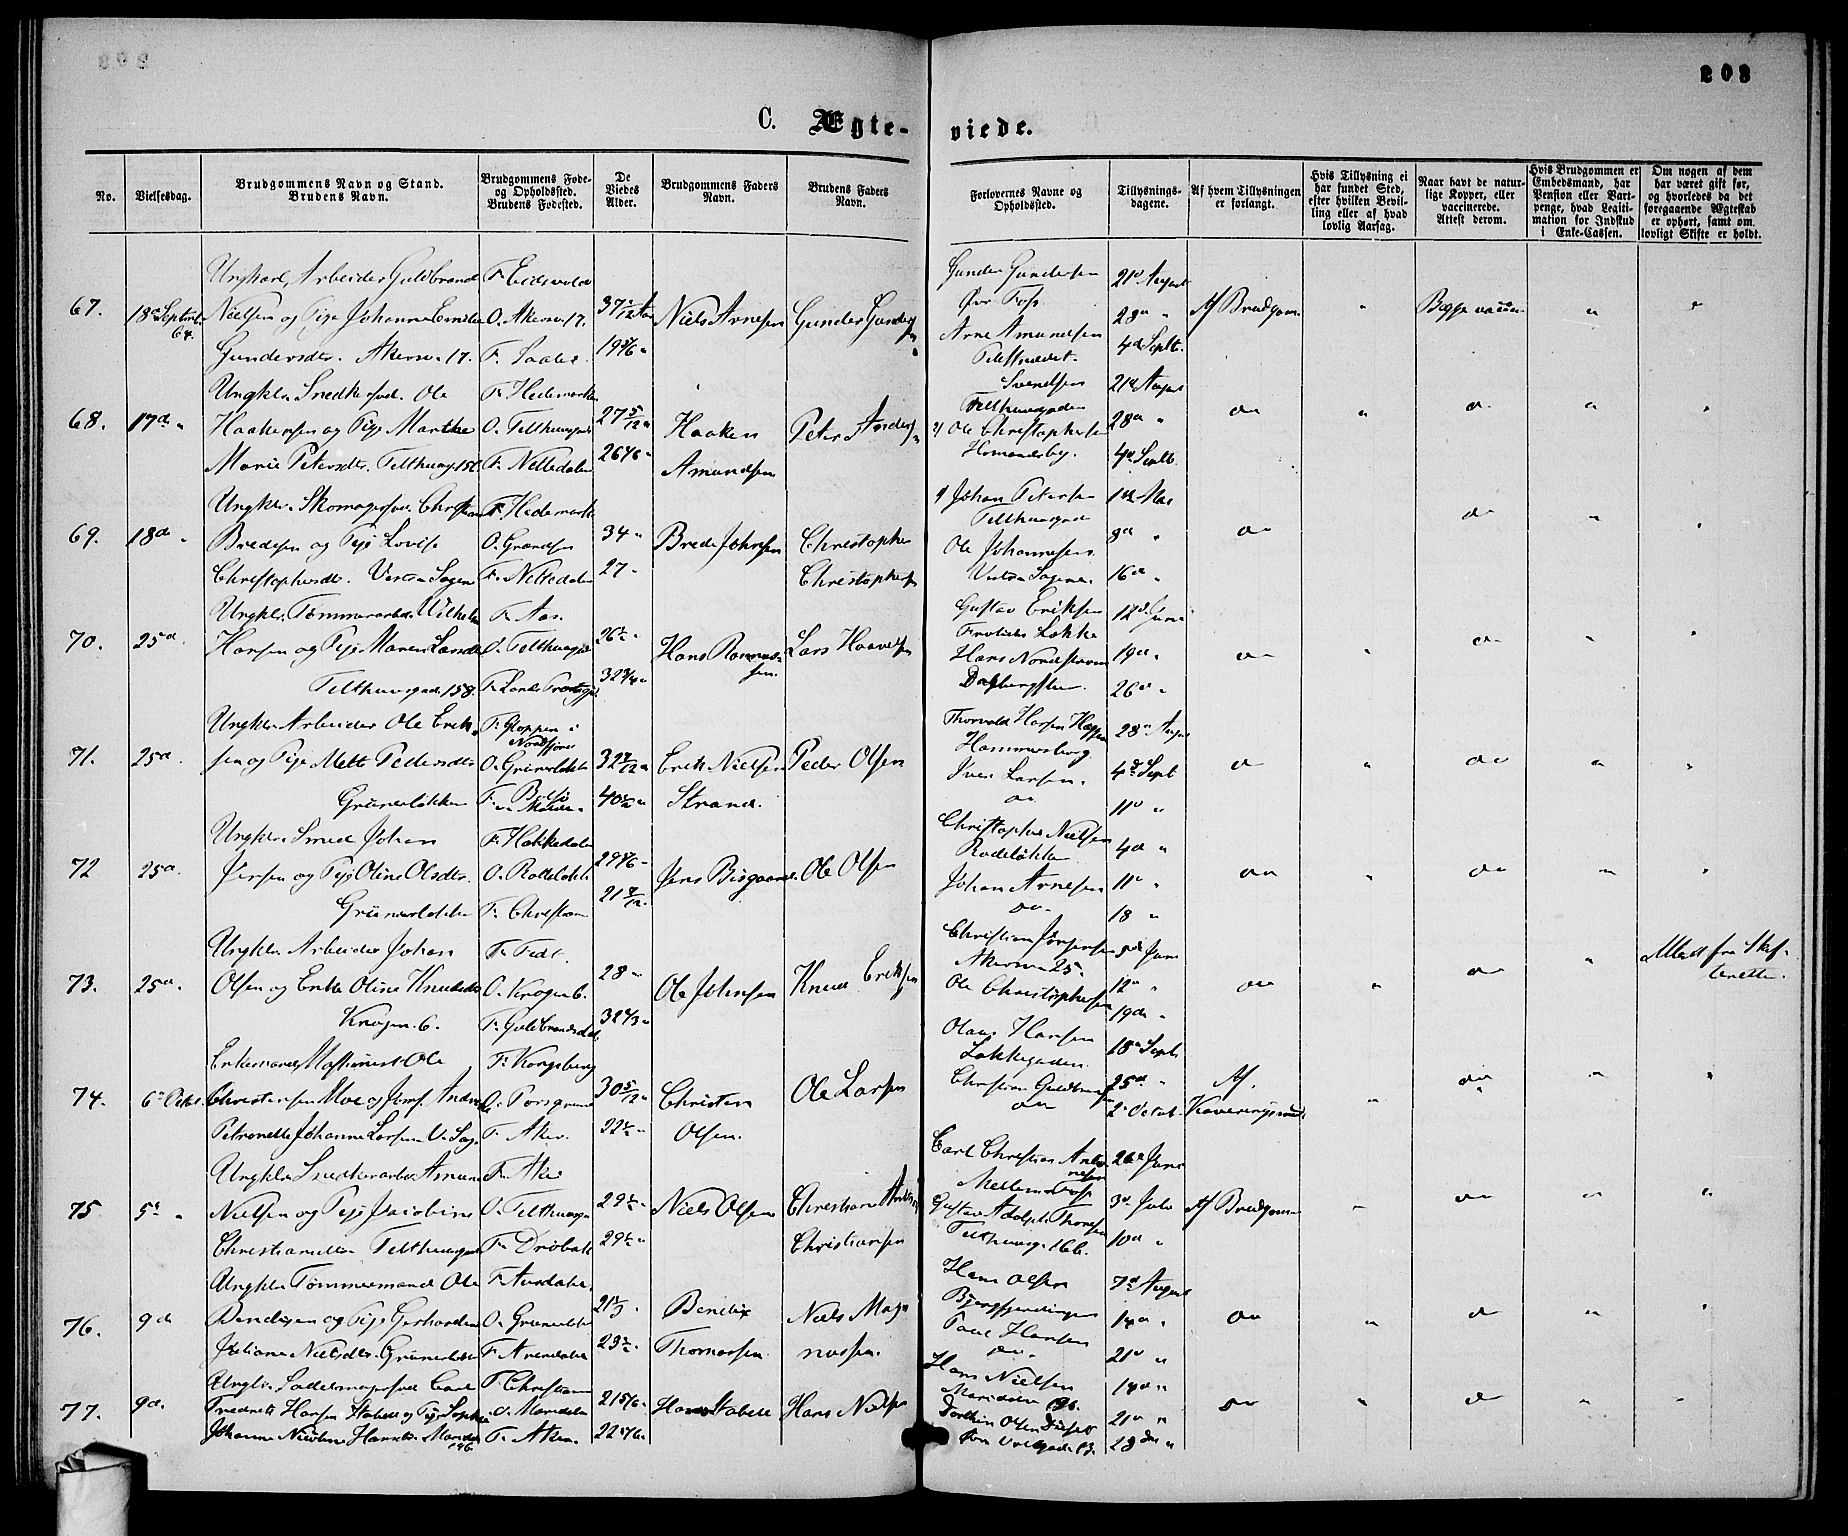 203
C. Ægte-
viede.
No.
Vielsesdag.
Brudgommens Navn og Stand.
Brudens Navn.
Brudgommens Føde-
og Opholdssted.
Brudens Fødested.
De
Viedes
Alder.
Brudgommens Faders
Navn.
Brudens Faders
Navn.
Forlovernes Navne og
Opholdssted.
Tillysnings-
dagene.
Af hvem Tillysningen
er forlangt.
Hvis Tillysning ei
har fundet Sted,
efter hvilken Bevil-
ling eller af hvad
lovlig Aarsag.
Naar havt de natur-
lige Kopper, eller
vaccinerede.
Attest derom.
Hvis Brudgommen er
Embedsmand, har
Pension eller Var-
penge, hvad Legiti-
mation for Indskud
i Enke-Cassen.
Om nogen af dem
har været gift før,
og hvorledes da det
foregaaende Ægteskab
er ophørt, samt om
lovligt Skifte er holdt.
67.
18de Septbr.
64.
Ungkarl, Arbeider Guldbrand
Nielsen og Pige Johanne Emilie
Gundersdtr. Akersv. 17.
F. Eidsvold
O. Akersv. 17.
Niels Arnesen
Gunder Gunder-
Gunder Gundersen
Øvr Foss.
Arne Amundsen
21d August
28d "
4d Septb.
Af Brudgom.
Begge vaccin.
68.
17de "
Ungkl. Snedkersvd. Ole
Haakensen og Pige Marthe
Marie Petersdtr. Telthusg. 150
F. Hedemarken
O. Telthusgd
F. Nittedalen
27 5/12
Haaken
Amundsen
Peter Anders
Svendsen
Telthusgaden
2) Ole Christophersen
Homansby.
21d August
28d "
4d Septb.
do
69.
18de "
Ungkl. Skomagersvd. Christian
Bredesen og Pige Lovise
Christophersdtr. Vestre Sagene
F. Hedemark
O. Grændsen
F. Nittedalen
34 "
27 "
Brede Johnsen
Christopher
Christophersen
1) Johan Petersen
Telthusgad
Ole Johannesen
Vestre Sagene.
1ste Mai
8d "
16d "
do
70.
25d.
Ungkl. Tømmerarbd. Wilhelm
Hansen og Pige Maren Larsdtr
Telthusgade. 158.
F. Aas.
O. Telthusgd
Hans Rasmus-
sen.
Lars Haavelsen
Gustav Eriksen
Frølichs Løkke
Hans Nordstrøm
12d. Juni
19d "
26d "
do
71.
25d
Ungkl. Arbeider Ole Erik-
sen og Pige Mette Pedersdtr
Grünerløkken
F. Gloppen i
Nordfjord
O. Grünerløkken
F. Bolsø
v. Molde.
Erik Nielsen
Strand.
Peder Olsen
Thorvald Hansen
Hammersborg
Iver Larsen.
do
28d August
4de Septb
11d "
do
72
25d.
Ungkl. Smed Johan
Jensen og Pige Oline Olsdtr.
Grünerløkken
F. Hakkedalen
O. Rodeløkk.
F. Christiania
Jens Bisgaard.
Ole Olsen
Christopher Nielsen
Rodeløkken
Johan Arnesen
do.
4d "
11d "
18 "
do
73.
25d.
Ungkl. Arbeider Johan
Olsen og Enke Oline Knudsdtr
Krogen. 6.
F. Fedt.
O. Krogen 6.
F. Guldbrandsdal.
28 "
Ole Johnsen
Knud Eriksen
Christian Jørgensen
Akersv. 25.
Ole Christophersen
5te Juni
12d "
19de "
do
Attest fra Skif-
teretten.
74.
6te Octbr.
Enkemand, Maskinist Ole
Christensen Moe og Jomf. Andrea
Petronelle Johanne Larsen V. Sag.
F. Kongsberg
O. Porsgrund
F. Aker.
30 5/12
Christen
Olsen.
Ole Larsen
Olaus Hansen
Løkkegaden
Christian Guldbrandsen
do
18d Septb
25d "
2d Octob.
Af
75
5te "
Ungkl. Snedkerarbd. Amund
Nielsen og Pige Jacobine
Christiansdtr Telthusgad
F. Aker
O. Telthusgd
F. Drøbak
Niels Olsen
Christian
Christiansen
Carl Christian
Mellem Foss
Gustav Adolph Thoresen
Telthusg. 166.
26d Juni
3d Juli
10d "
Af Brudgom.
do
76.
9de
Ungkl. Tømmermand Ole
Bendixen og Pige Gerhardine
Juliane Nielsdtr. Grünerløkk.
F. Aurdalen.
O. Grünerløkk
F. Arendal
Bendix
Thomassen.
Niels Mag-
nussen.
Hans Olsen
Bjergfjerdingen
Paul Hansen
do.
7d August
14d "
21d "
do
77.
9d.
Ungkl. Sadelmagersvd Carl
Fredrik Hansen Stabell og Pige Sophie
F. Christiania
O. Maridalen
F. Aker.
Hans Stabell
Hans Nielsen
Hans Nielsen
Maridalen 196.
14d "
21d "
28de "
do